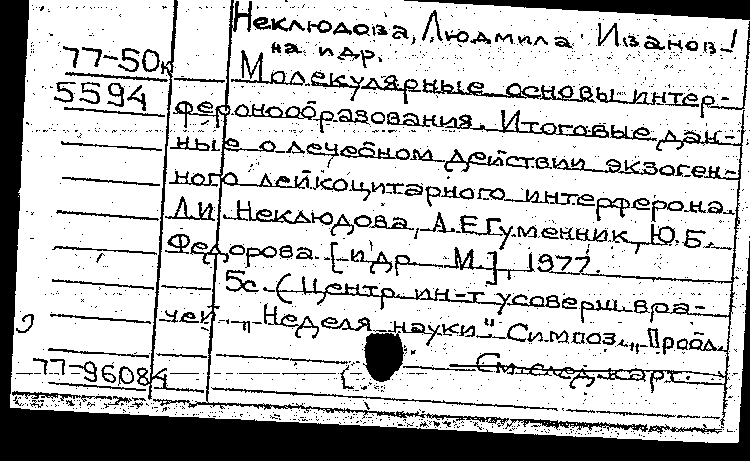 Неклюдова, Людмила Иванов-
на и др.
77-50к
5594
Молекулярные основы интер-
феронообразования. Итоговые дан-
ные о лечебном действии экзоген-
ного лейкоцитарного интерферона.
Л.И. Неклюдова, А.Е Гуменник, Ю.Б.
Федорова [и др. М.], 1977.
5с. (Центр. ин-т усоверш. вра-
чей. „Неделя науки" Симпоз. „Пробл.
77-96084
См. след. карт.